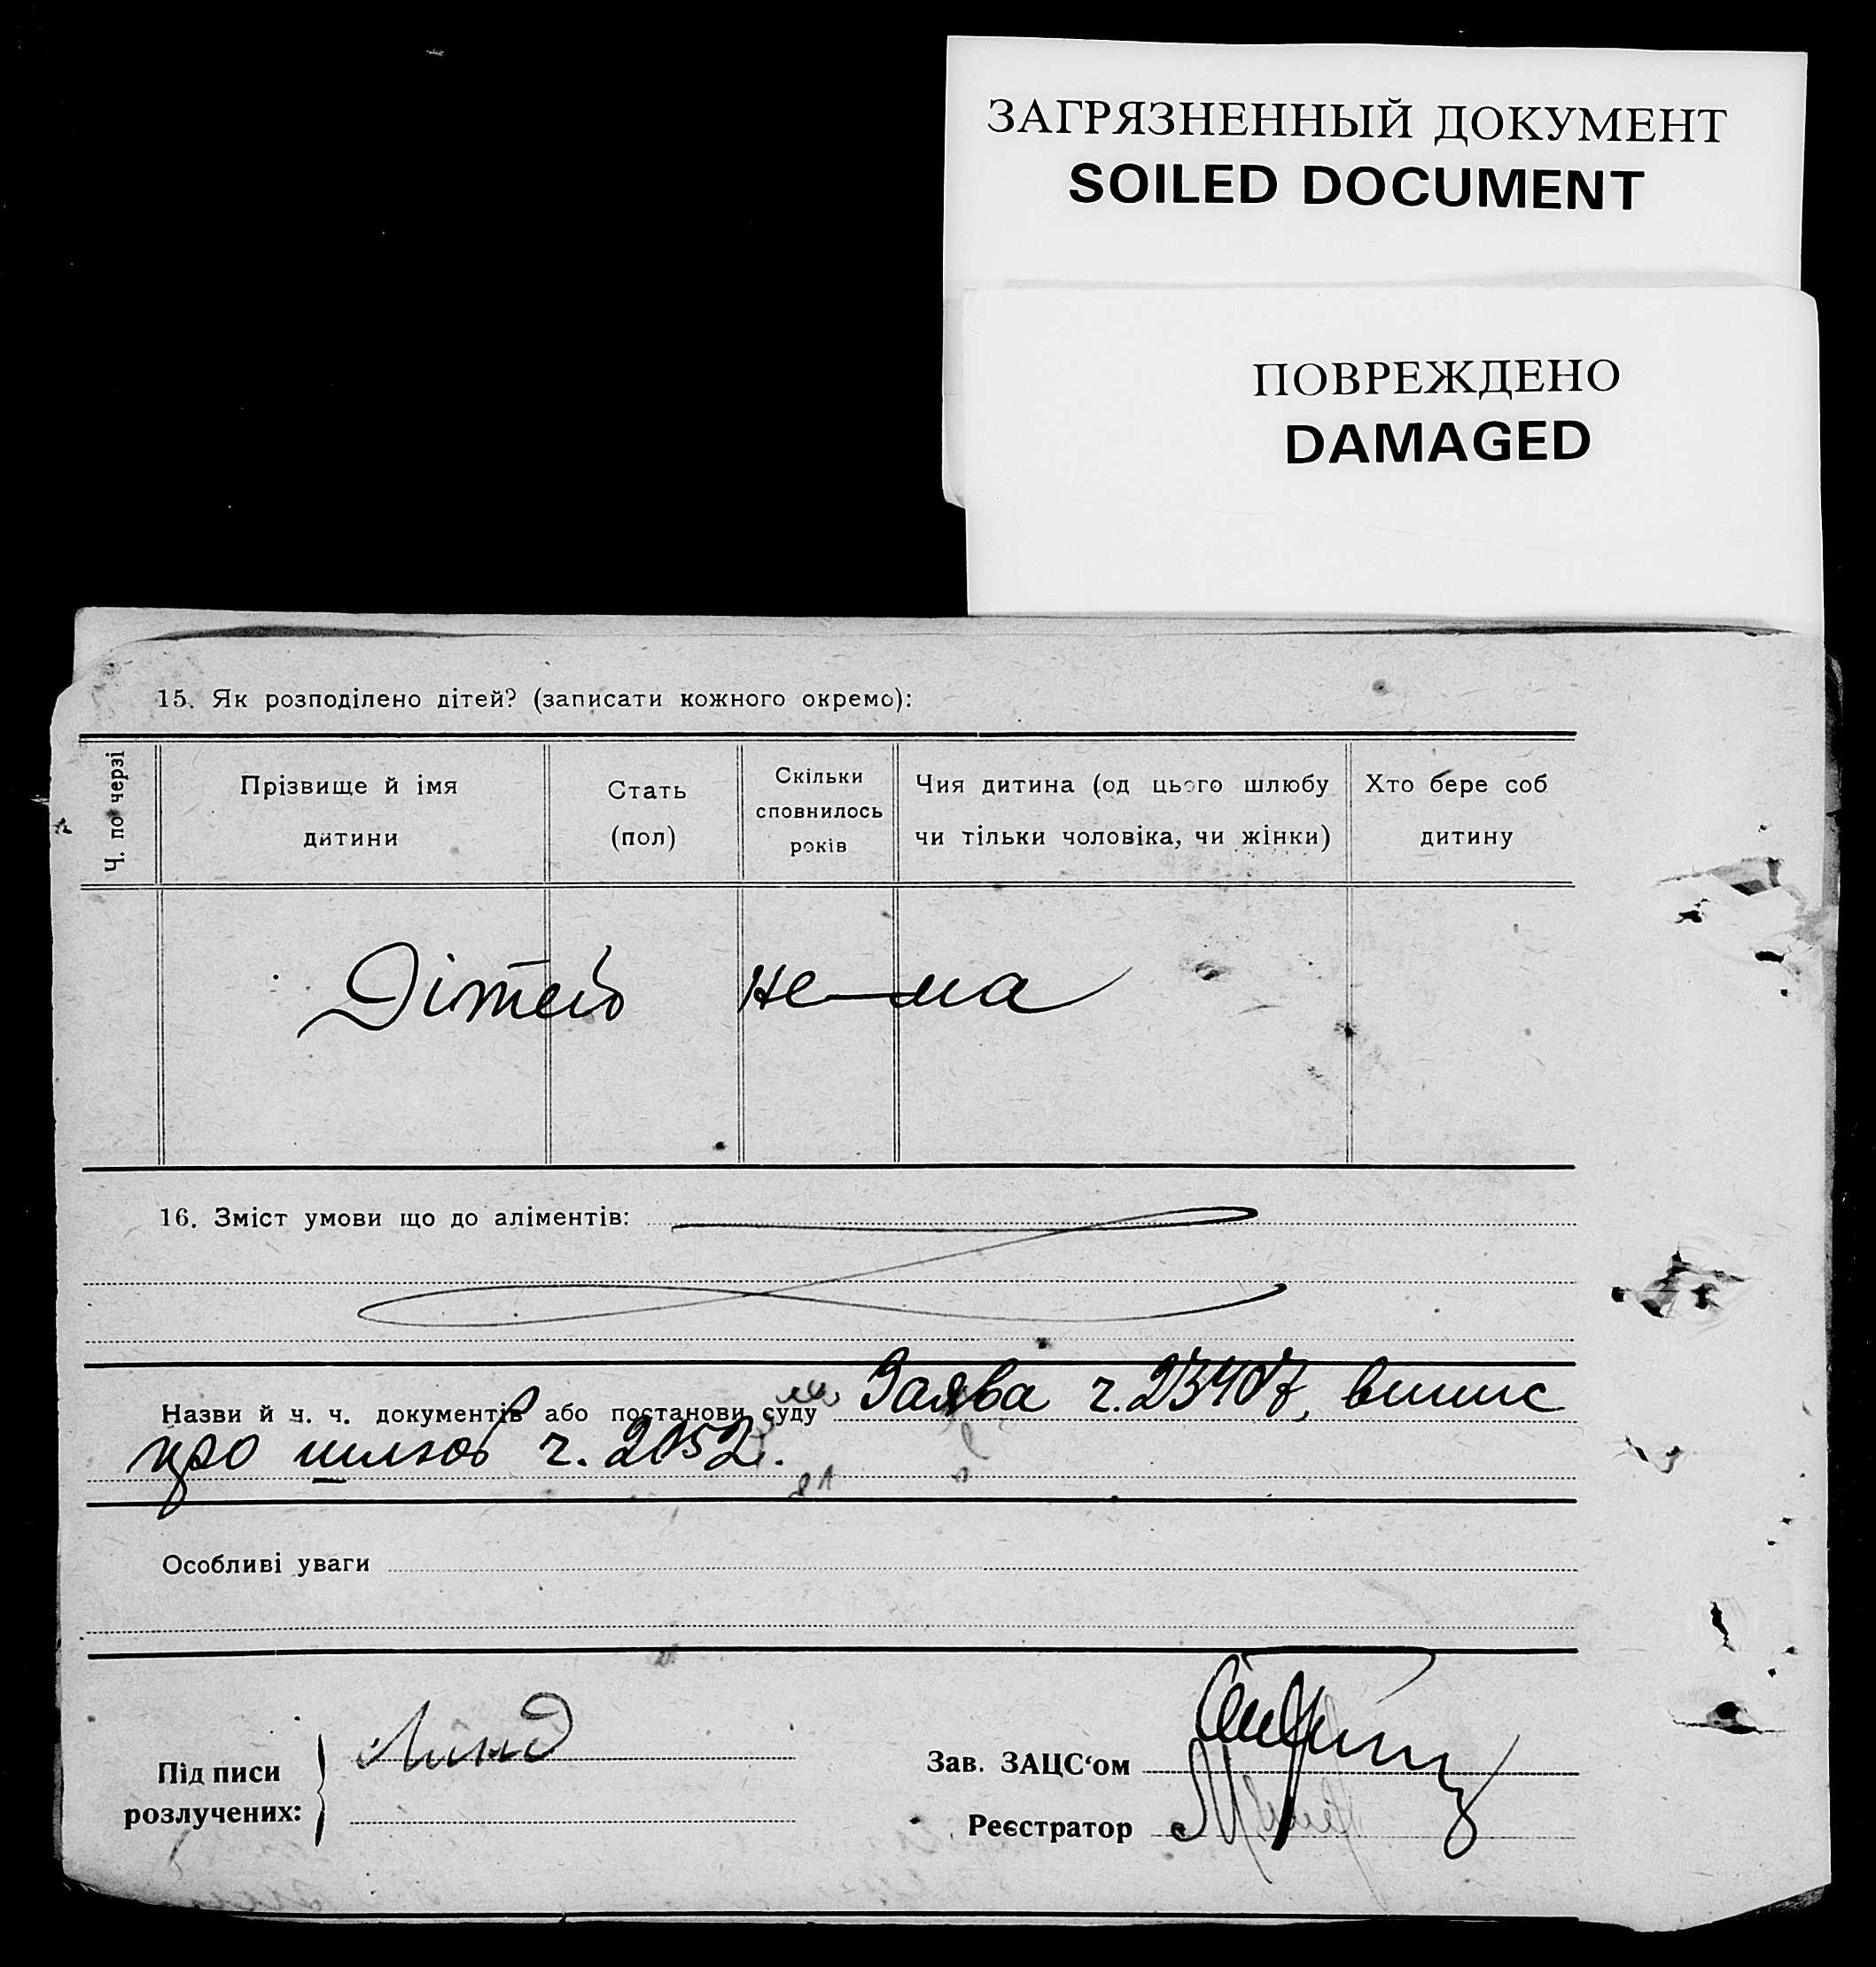 ЗАГРЯЗНЕННЫЙ ДОКУМЕНТ
SOILED DOCUMENT
ПОВРЕЖДЕНО
DAMAGED
15. Як розподілено дітей? (записати кожного окремо):
Ч. по черзі
Прізвище й імя
дитини
Стать
(пол)
Скільки
сповнилось
років
Чия дитина (од цього шлюбу
чи тільки чоловіка, чи жінки)
Хто бере соб
дитину
Дітей не-ма
16. Зміст умови що до аліментів:
Назви й ч. ч. документів або постанови суду Заява ч. 23407, випис
про шлюб ч. 2052.
Особливі уваги
Підписи
розлучених:
Зав. ЗАЦС‘ом
Реєстратор